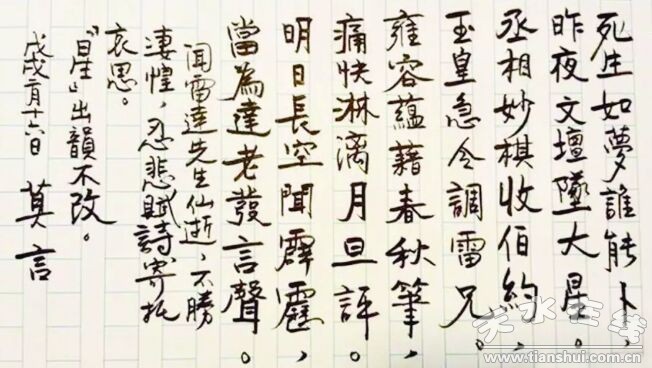 死生如夢誰能卜，
昨夜文壇墜大星。
丞相妙棋收伯約，
玉皇急令調雷兄。
雍容蘊藉春秋筆，
痛快淋漓月旦評。
明日長空聞霹靂，
當為達老發言聲。
聞雷達先生仙逝，不勝
淒惶，忍悲賦詩寄托
哀思。
“星”出韻不改。
戊戌二月十六日 莫言
天水在线
www.tianshui.com.cn